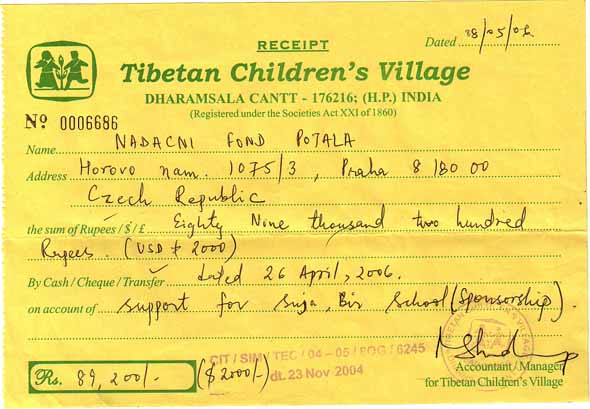 RECEIPT
Dated 28/05/06
Tibetan Children's Village
DHARAMSALA CANTT - 176216; (H.P.) INDIA
(Registered under the Societies Act XXI of 1860)
Nº 0006686
Name NADACNI FOND POTALA
Address Horovo nam. 1075/3, Praha 8 180 00
Czech Republic
the sum of Rupees / $ / £ Eighty Nine thousand two hundred
Rupees. (USD $ 2000)
By Cash / Cheque / Transfer dated 26 April, 2006.
on account of support for Suja, Bir School (Sponsorship).
TIBETAN VILLAGE
Accountant / Manager
for Tibetan Children's Village
Rs. 89,200/- ($2000/-)
CIT / SIM / TEC / 04 - 05 / 80G / 6245
dt. 23 Nov 2004